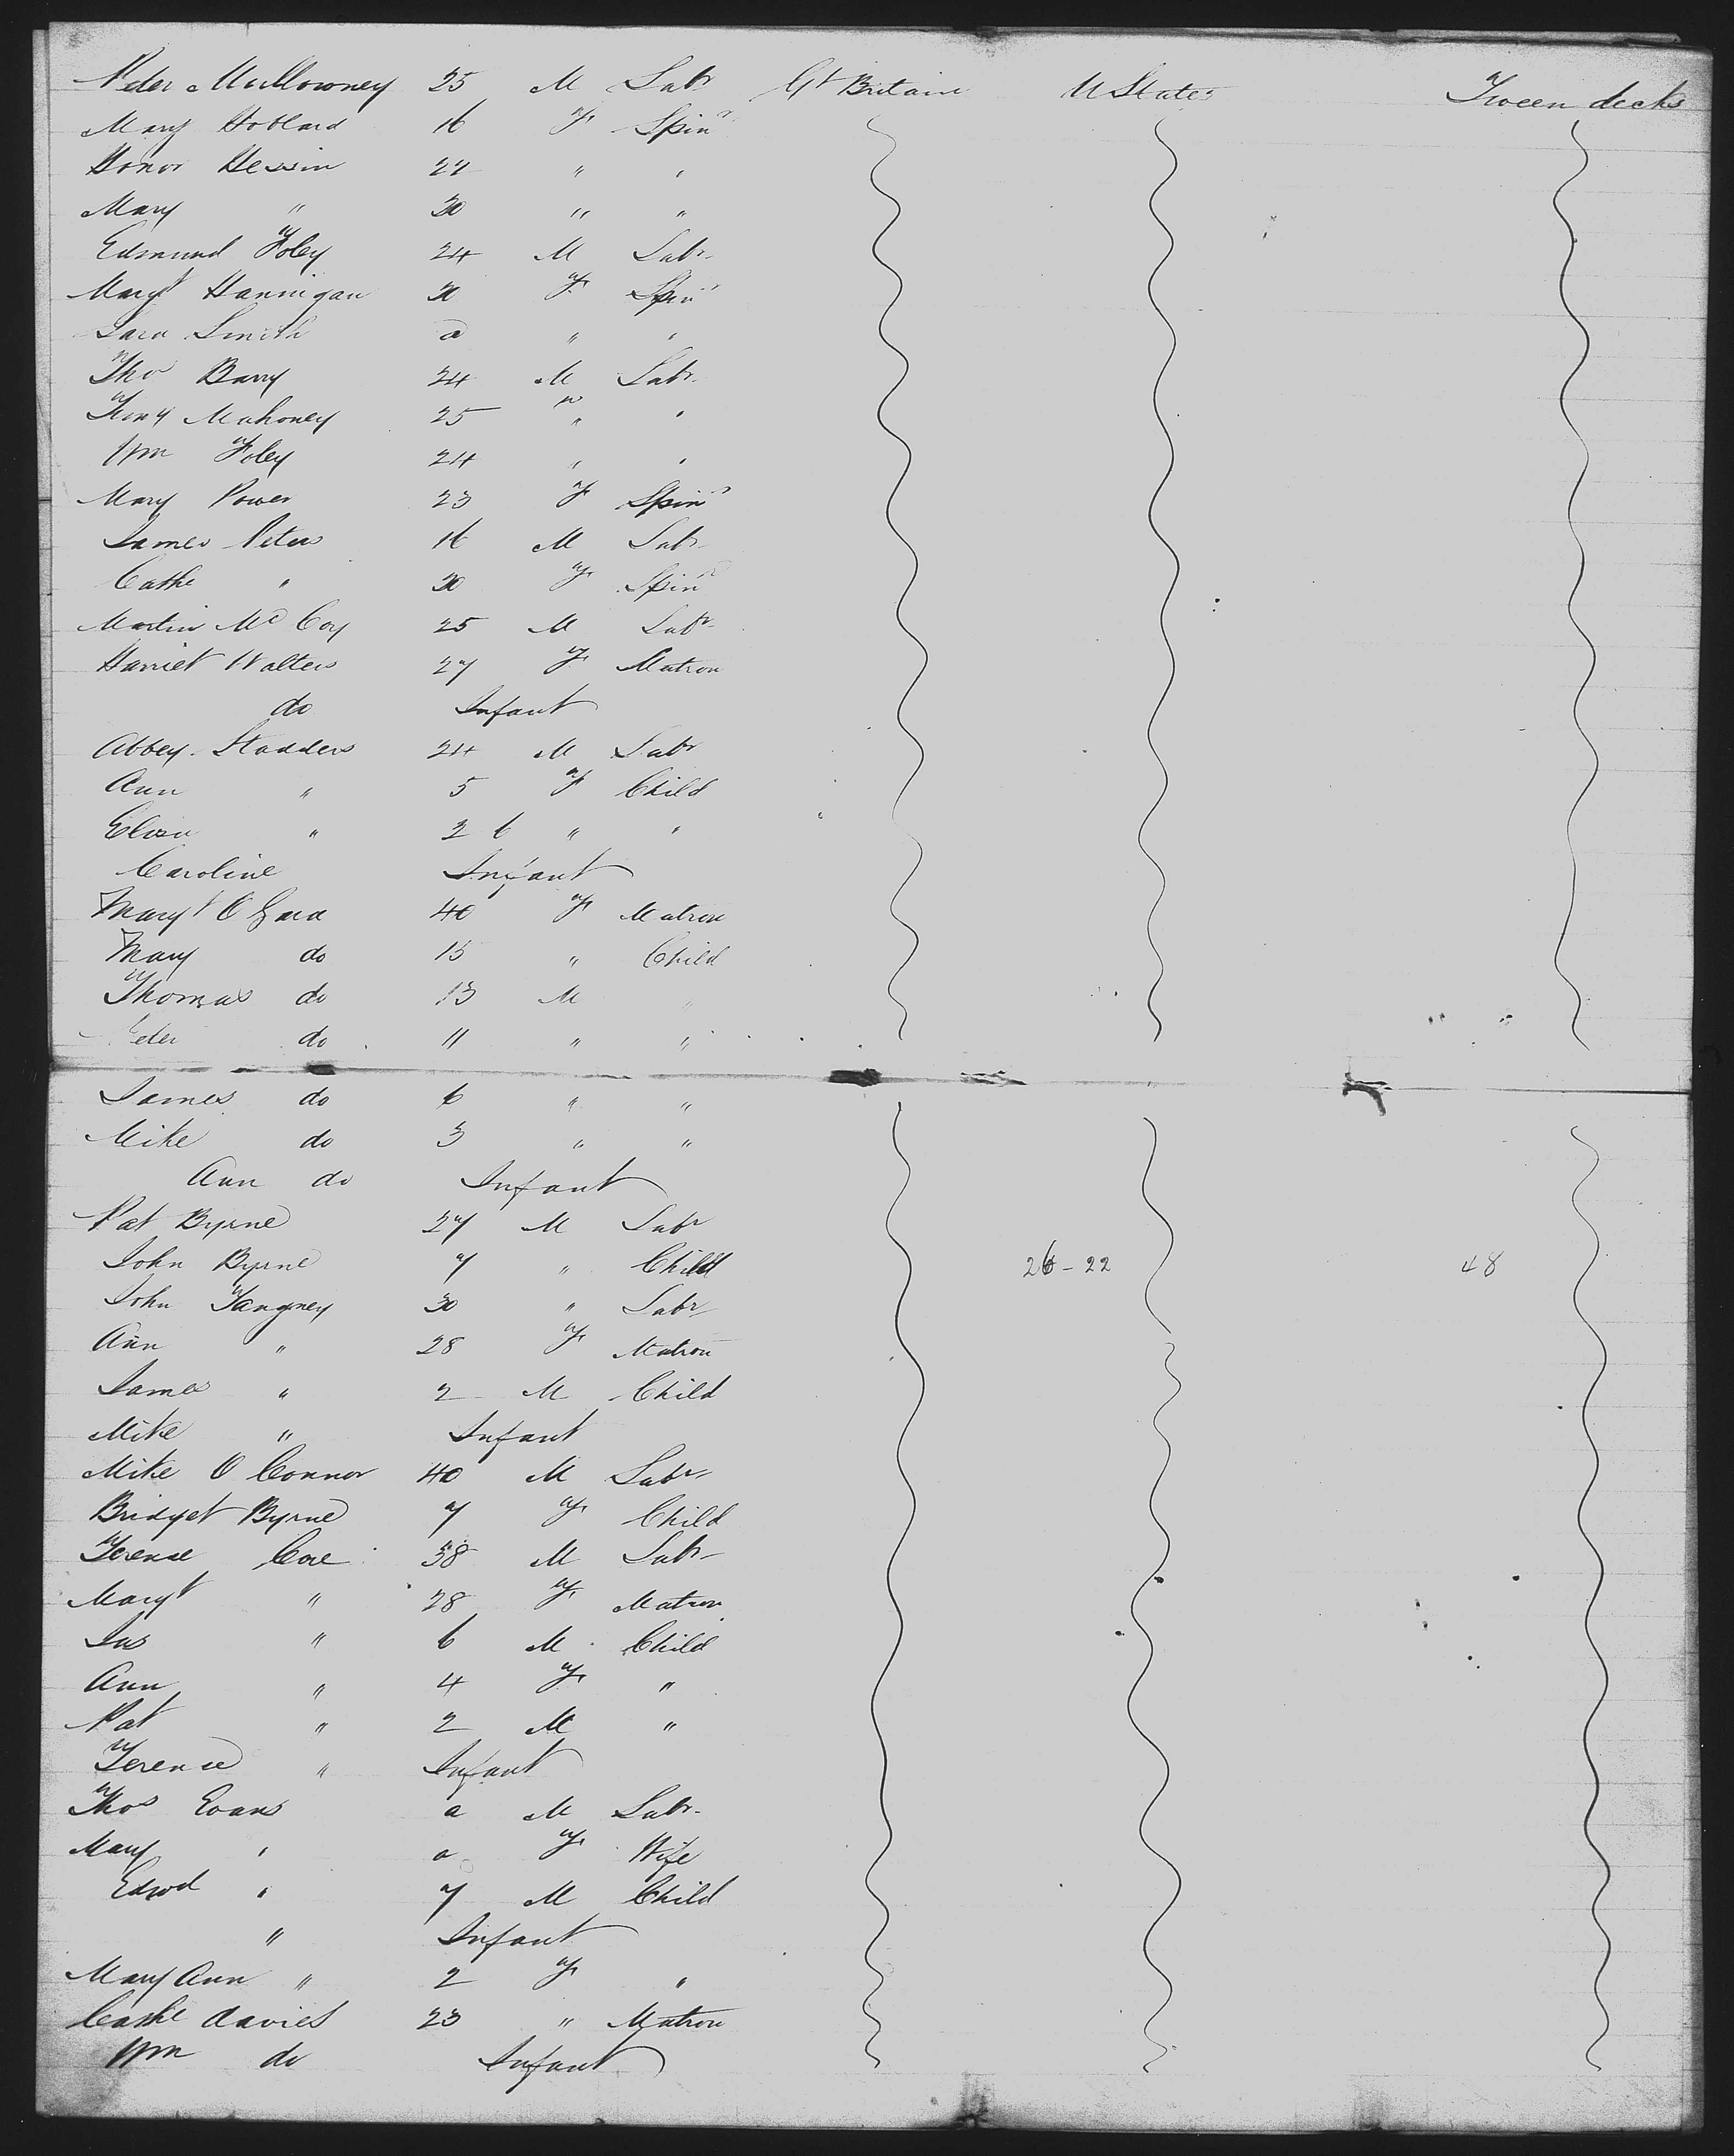 Peter Mullowney 25 M Labr Gt Britain U States Tween decks
Mary Hobbard 16 F Spinr
Honor Hessin 22 " "
Mary " 30 " "
Edmund Foley 24 M Labr
Margt Hannigan 30 F Spinr
Sara Smith a " "
Tho Barry 24 M Labr
Timy Mahoney 25 " "
Wm Foley 24 " "
Mary Power 23 F Spinr
James Peters 16 M Labr
Cathe " 30 F Spinr
Martin McCoy 25 M Labr
Harriet Walters 27 F Matron
do Infant
Abbey Stadders 24 M Labr
Ann " 5 F Child
Eliza " 2 6 " "
Caroline Infant
Margt O Gara 40 F Matron
Mary do 15 " Child
Thomas do 13 M "
Peter do 11 " "
James do 6 " "
Mike do 3 " "
Ann do Infant
Pat Byrne 27 M Labr
John Byrne 7 " Child 26-22 48
John Tangney 30 " Labr
Ann " 28 F Matron
James " 2 M Child
Mike " Infant
Mike O Connor 40 M Labr
Bridget Byrne 7 F Child
Terence Coe 38 M Labr
Margt " 28 F Matron
Jas " 6 M Child
Ann " 4 F "
Pat " 2 M "
Terence " Infant
Thos Evans a M Labr
Mary " a F Wife
Edwd " 7 M Child
" Infant
Mary Ann " 2 F "
Cathe Davies 23 " Matron
Wm do Infant